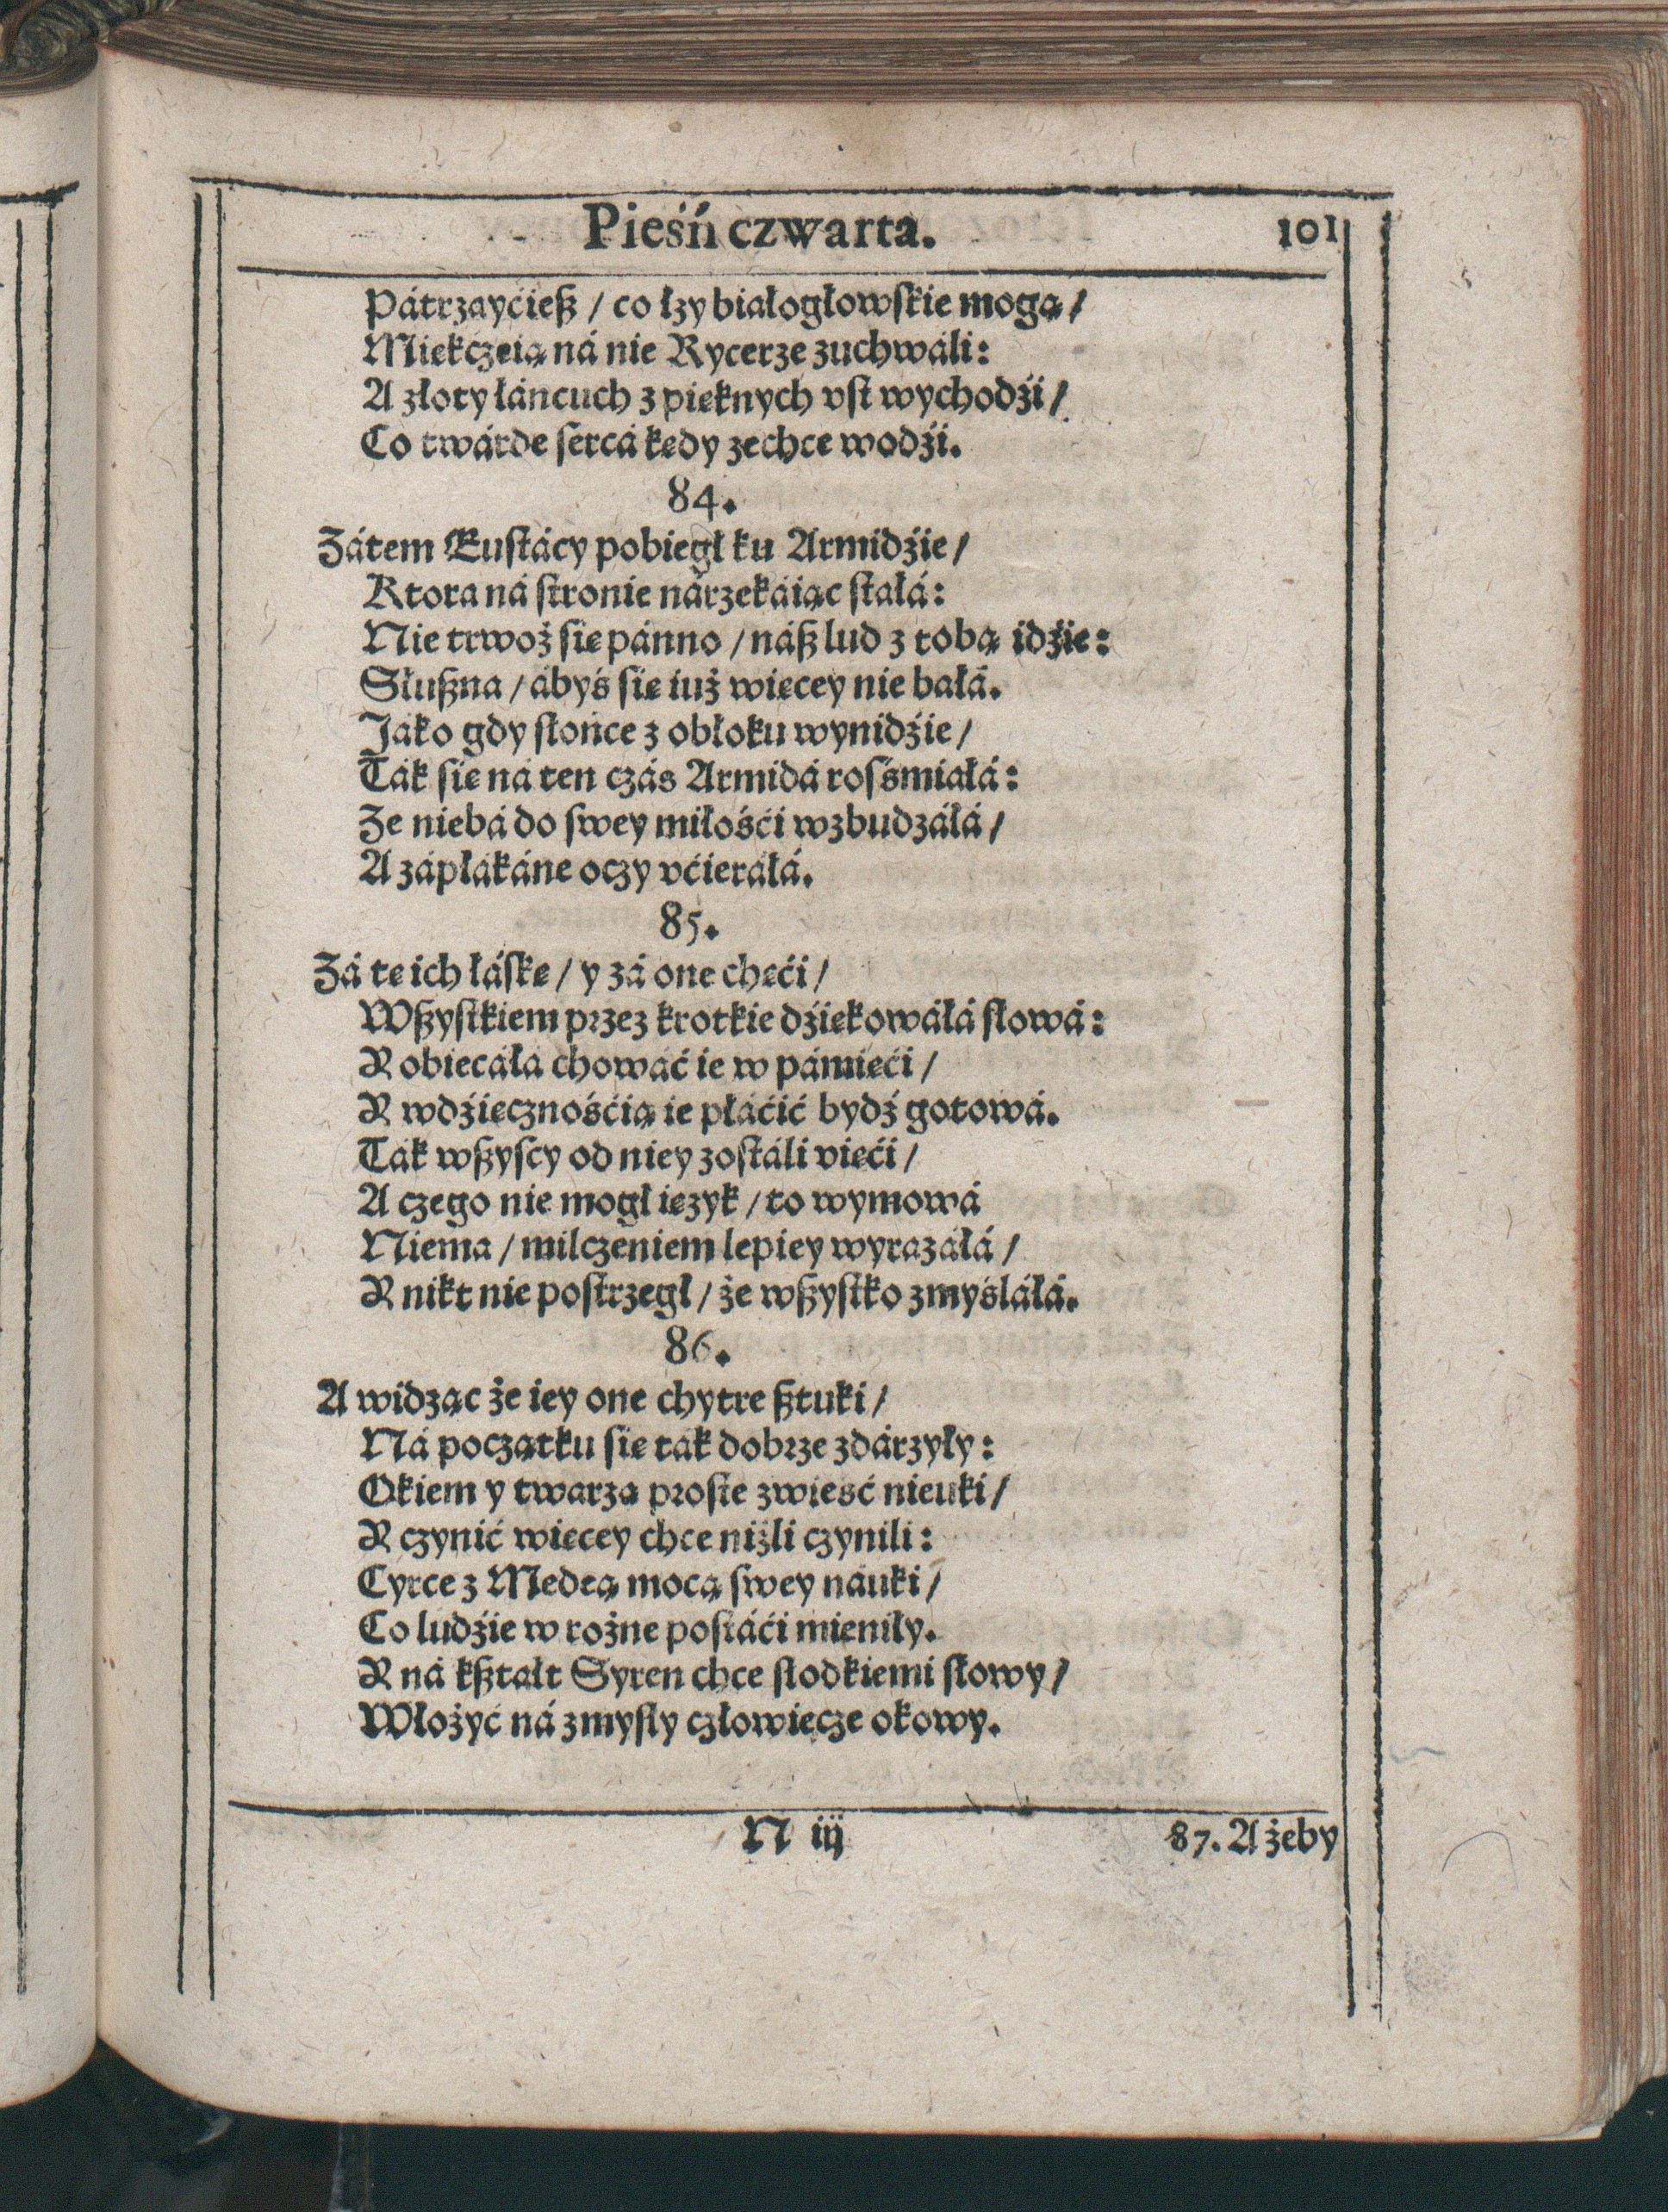 Pieśń czwarta. 101
Pátrzayćieß / co łzy białogłowſkie mogą /
Miękczeią ná nię Rycerze zuchwáli:
A złoty łáncuch z pięknych vſt wychodźi /
Co twárde ſercá kędy zechce wodźi.
84.
Zátem Euſtácy pobiegł ku Armidźie /
Ktora ná ſtronie nárzekáiąc ſtałá:
Nie trwoż ſię pánno / náß lud z tobą idźie:
Słußna / ábyś ſię iuż więcey nie bałá.
Jáko gdy słońce z obłoku wynidźie /
Ták ſię ná ten czás Armidá roſśmiałá:
Ze niebá do ſwey miłośći wzbudzáłá /
A zápłákáne oczy vćieráłá.
85.
Zá tę ich łáſkę / y zá one chęći /
Wßyſtkiem przez krotkie dźiękowáłá słowá:
Y obiecáłá chowáć ie w pámięći /
Y wdźięcznośćią ie płáćić bydź gotowá.
Ták wßyſcy od niey zoſtáli vięći /
A czego nie mogł ięzyk / to wymowá
Niema / milczeniem lepiey wyrazáłá /
Y nikt nie poſtrzegł / że wßyſtko zmyśláłá.
86.
A widząc że iey one chytre ßtuki /
Ná początku ſię ták dobrze zdárzyły:
Okiem y twarzą proſte zwieść nieuki /
Y czynić więcey chce niżli czynili:
Cyrce z Medeą mocą ſwey náuki /
Co ludźie w rożne poſtáći mieniły.
Y ná kßtałt Syren chce słodkiemi słowy /
Włożyć ná zmysły człowiecze okowy.
N iij 87. A żeby